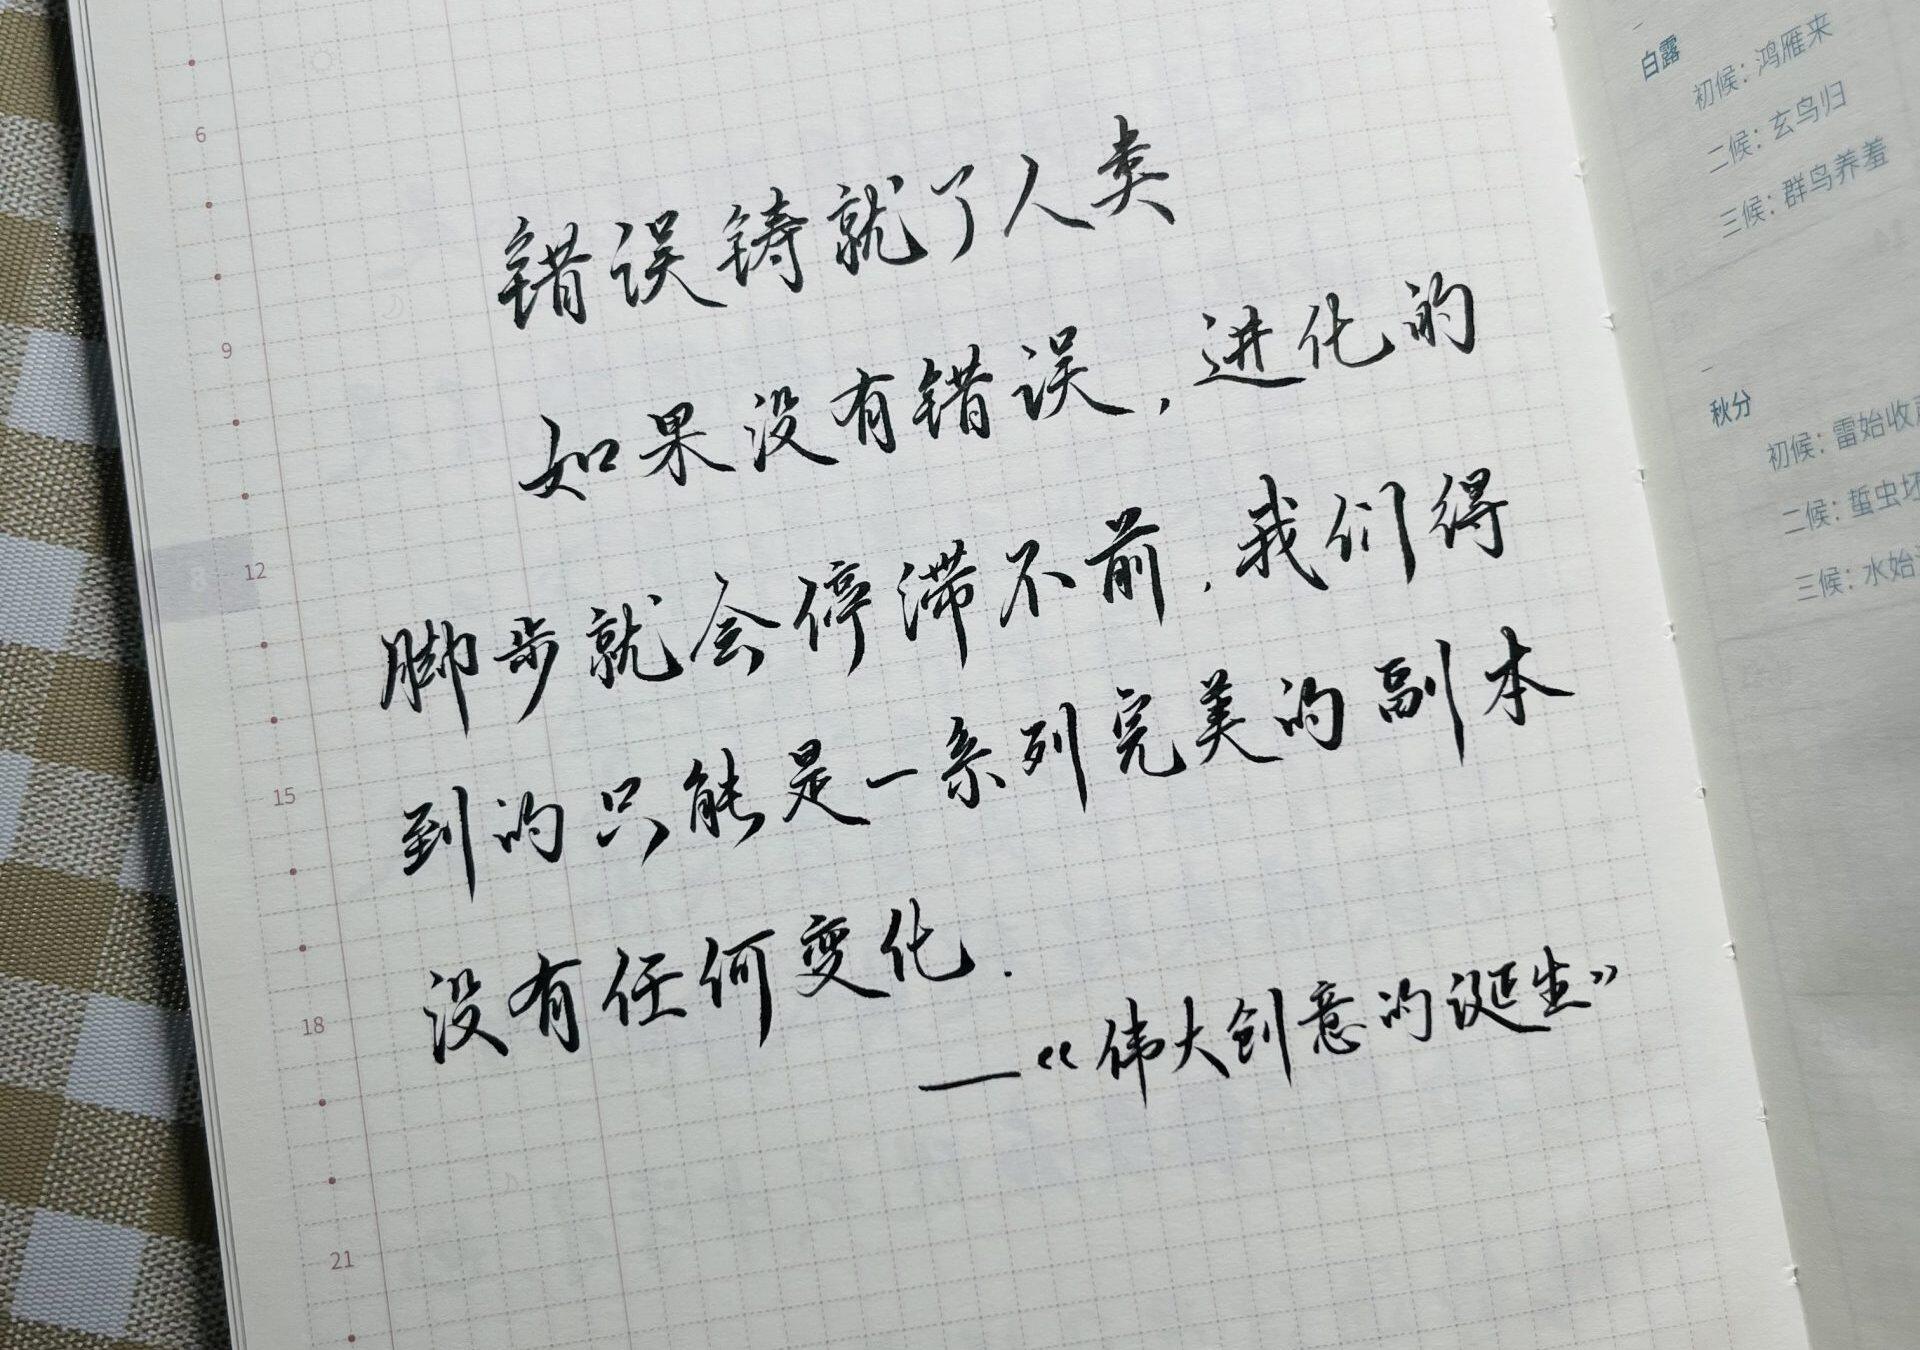 错误铸就了人类
如果没有错误，进化的
脚步就会停滞不前，我们得
到的只能是一系列完美的副本
没有任何变化.
—《伟大创意的诞生》
6
9
8
12
15
18
21
白露
初候：鸿雁来
二候：玄鸟归
三候：群鸟养羞
秋分
初候：雷始收
二候：蛰虫坯
三候：水始